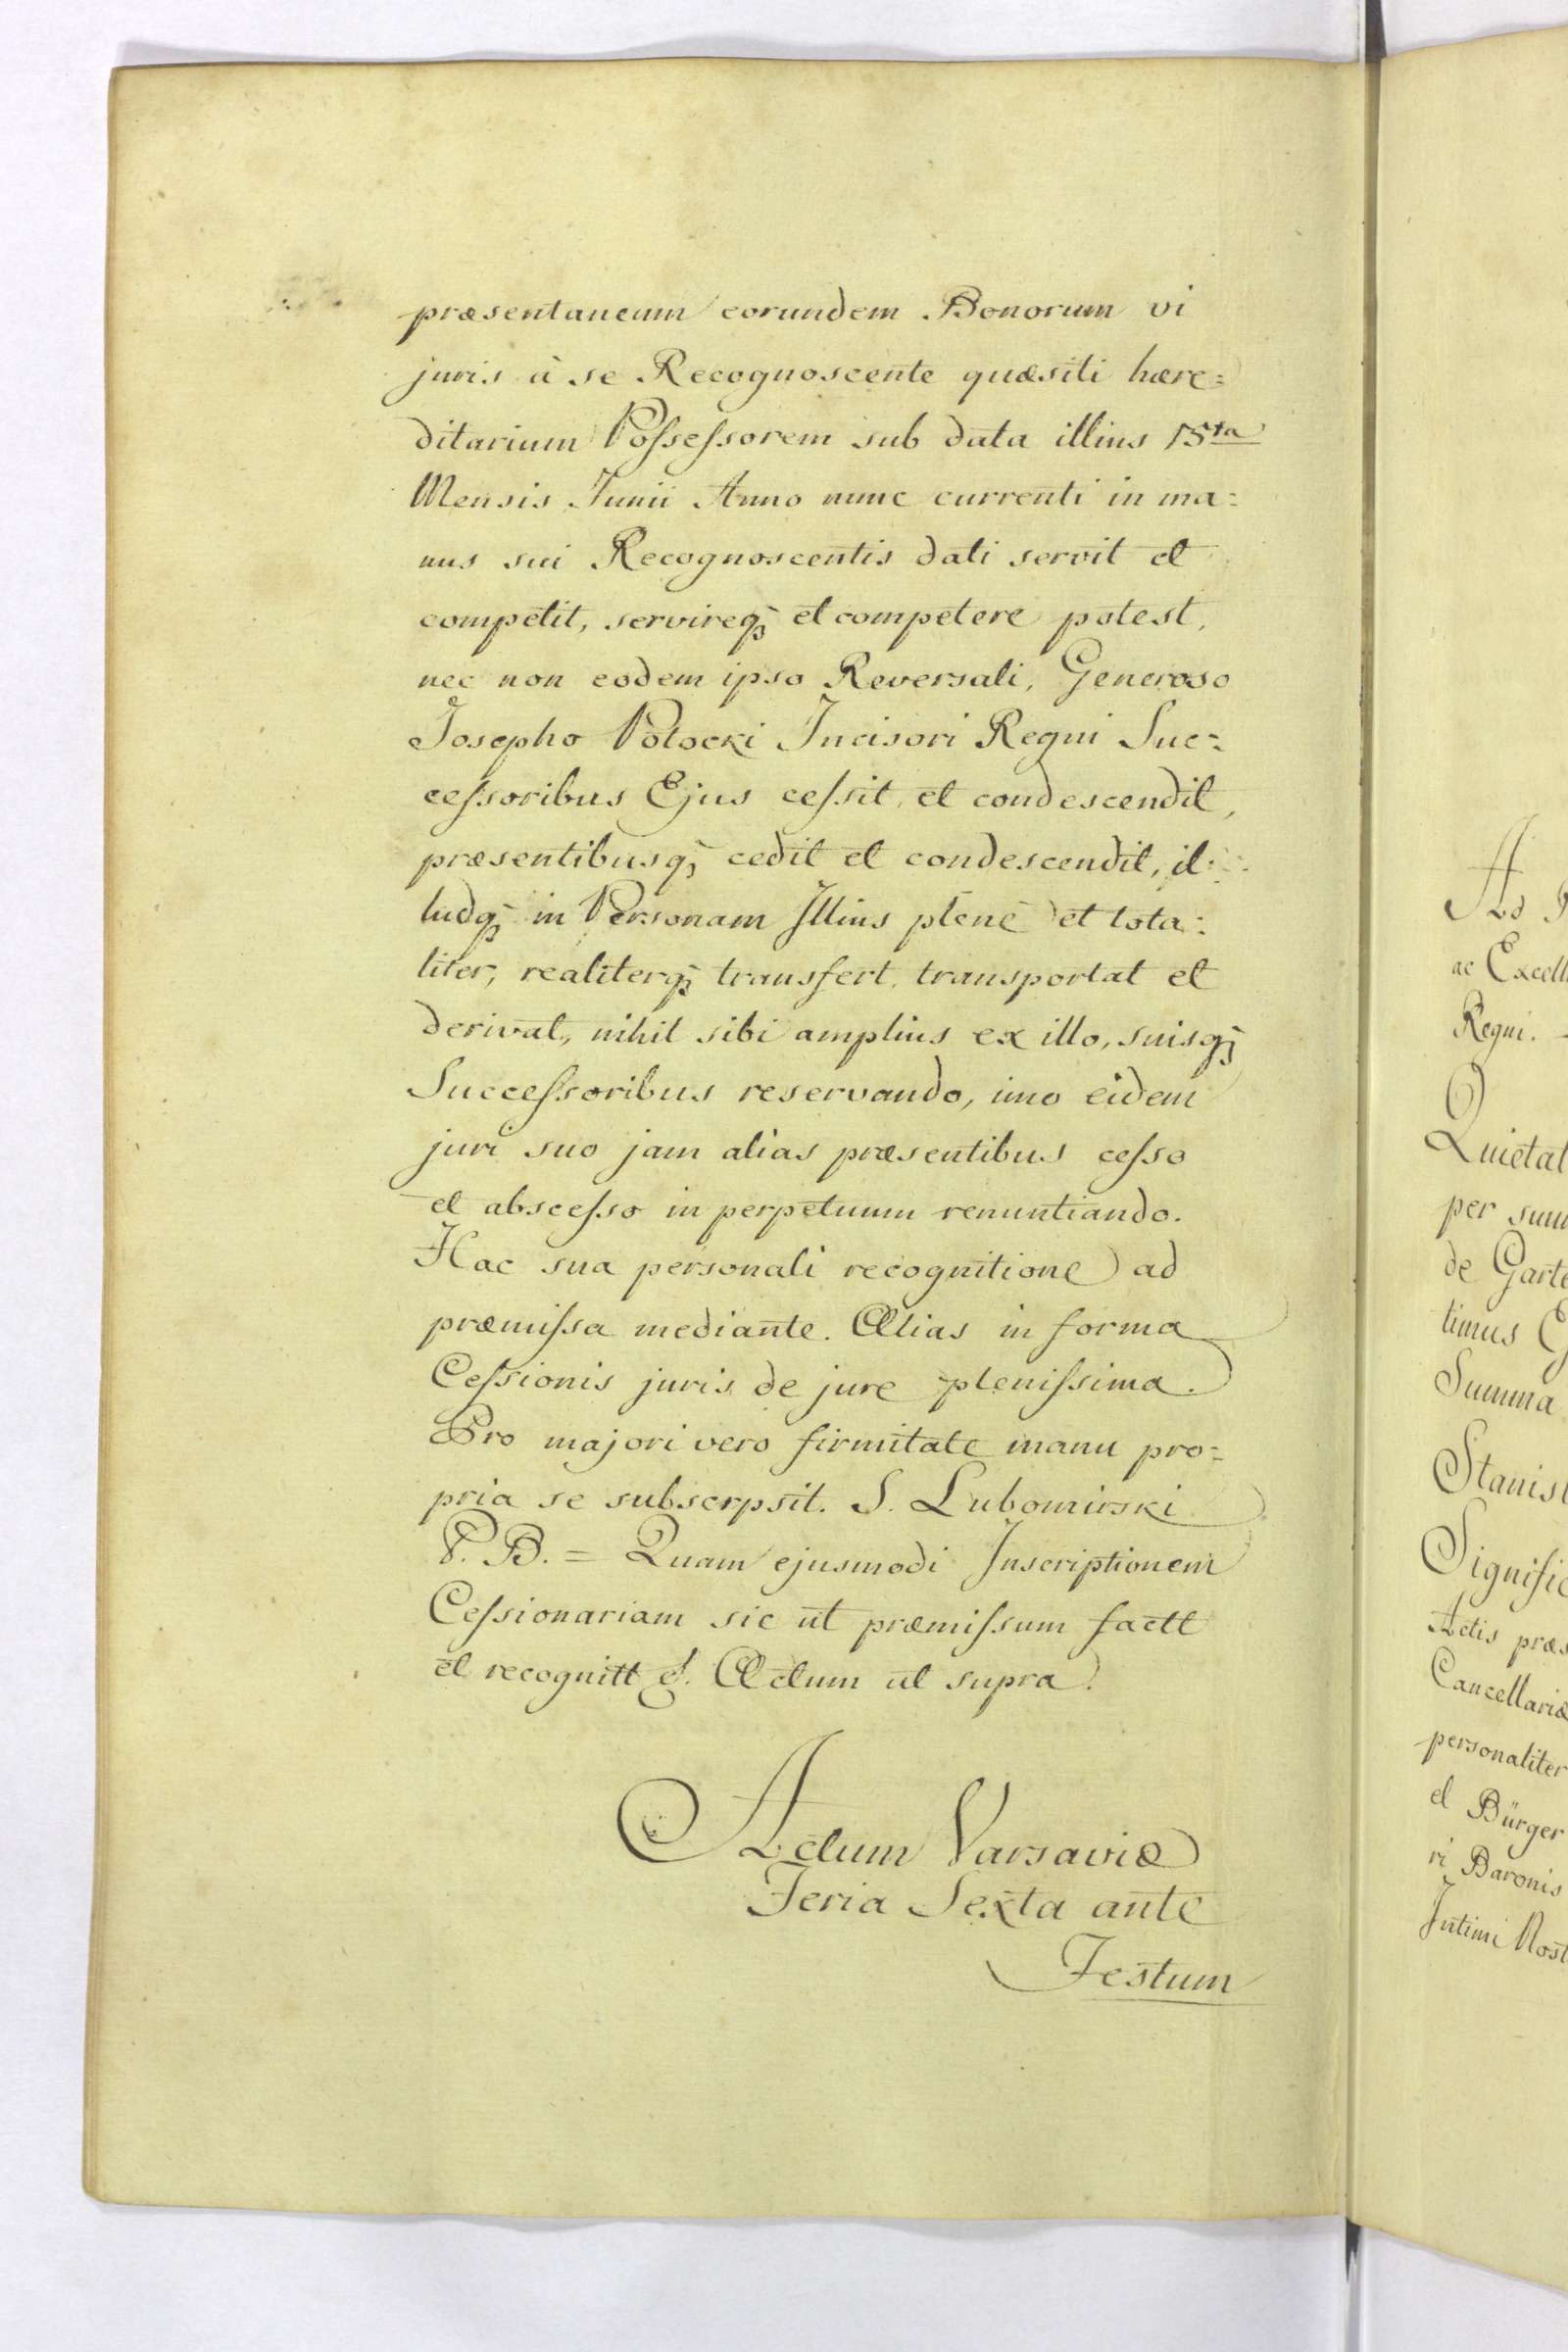 præsentaneum eorundem Bonorum vi
juris à se Recognoscente quæsiti hære=
ditarium Possessorem sub data illius 15ta
Mensis Junii Anno nunc currenti in ma=
nus sui Recognoscentis dati servit et
competit, servireq3 et competere potest,
nec non eodem ipso Reversali, Generoso
Josepho Potocki Incisori Regni Suc=
cessoribus Ejus cessit, et condescendit,
præsentibusq3 cedit et condescendit, il=
ludq3 in Personam Illius plenè et tota=
liter, realiterq3 transfert, transportat et
derivat, nihil sibi amplius ex illo, suisq3
Successoribus reservando, imo eidem
juri suo jam alias præsentibus cesso
et abscesso in perpetuum renuntiando.
Hac sua personali recognitione ad
præmissa mediante. Alias in forma
Cessionis juris de jure plenissima.
Pro majori vero firmitate manu pro=
pria se subscrpsit. S. Lubomirski
P. B. = Quam ejusmodi Inscriptionem
Cessionariam sic ut præmissum factt
et recognitt &. Actum ut supra.
Actum Varsaviæ
Feria Sexta ante
Festum
Ad
ac Excell
Regni.
Quietat
per sum
de Garte
timus
Summa
Stanisl
Signific
Actis præs
Cancellariæ
personaliter
et Bürger
ri Baronis
Intimi Nost